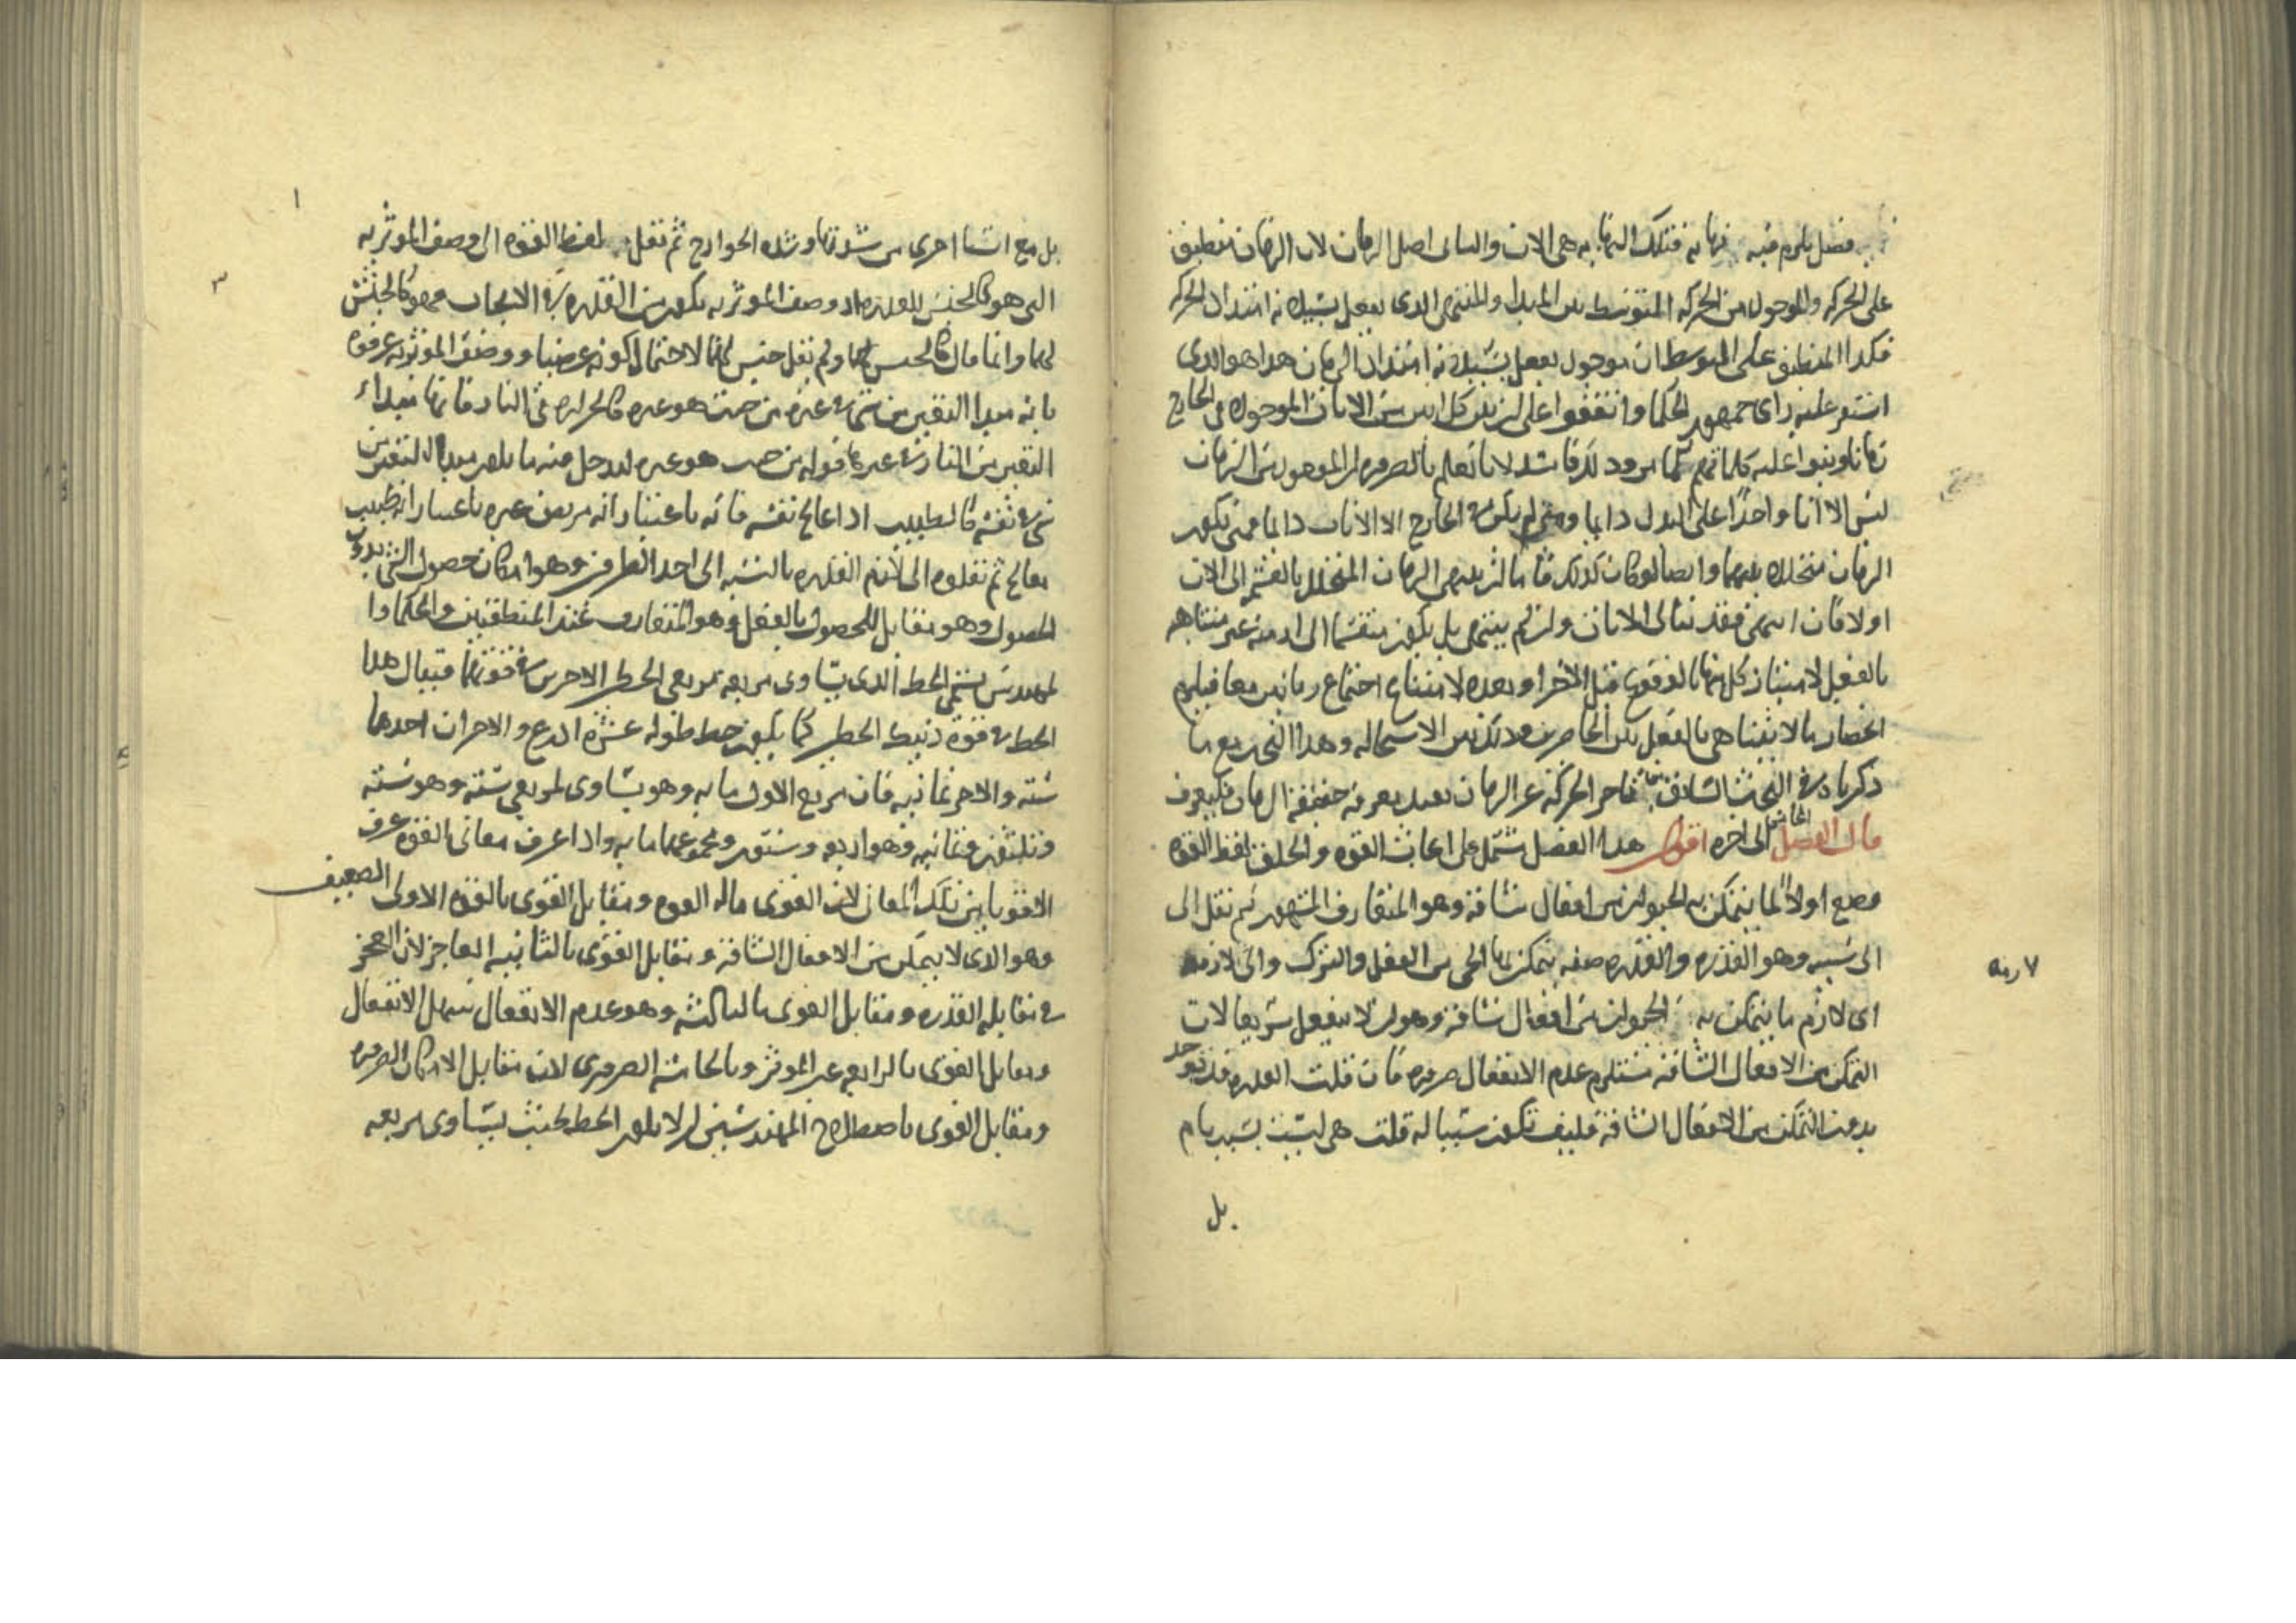 فصل يلزم فيه نهاية فتلك النهاية هى الان والثانى اصل الزمان لان الزمان منطبق
على الحركه والموجود من الحركه المتوسط بين المبدا والمنتهى الذى يفعل بسيلانه امتداد الحركه
فكذا المنطبق على المتوسط ان موجود يفعل بسيلانه امتداد الزمان هذا هو الذى
استقر عليه راى جمهور الحكما واتفقوا على ان بين كل انين من الانات الموجوده فى الخارج
زمانا وبنوا عليه كلماتهم
ليس الا انا واحدا على البدل دايما ومتى لم يكن فى الخارج الا الانات دايما فمتى يكون
الزمان متخللا بينهما وايضا لو كان كذلك فاما ان ينتهى الزمان المتخلل بالقسمه الى الان
اولا فان انتهى فقد تتالى الانان وان لم ينته بل يكون منقسما الى ازمنه غير متناهيه
بالفعل لامتياز كل منها بالوقوع قبل الاخر او بعده لامتناع اجتماع زمانين معا فيلزم
انحصار ما لا يتناهى بالفعل بين الحاصرين وذلك بين الاستحاله وهذا البحث مع ما
ذكرناه فى البحث السادس تاخر الحركه عن الزمان بعيد معرفه حقيقه الزمان فليعرف
قال الفصل الخامس الى اخره اقول هذا الفصل يشتمل على ابحاث القوه والخلق لفظ القوه
وضع اولا لما يتمكن به الحيوان من افعال شاقه وهو المتعارف المشهور ثم نقل الى
الى سببه وهو القدره والقدره صفه يتمكن بها الحى من الفعل والترك والى لازمه
اى لازم ما يتمكن به الحيوان من افعال شاقه وهو ان لا ينفعل سريعا لان
التمكن من الافعال الشاقه يستلزم عدم الانفعال ضروره فان قلت القدره قد توجد
بدون التمكن من الافعال الشاقه فكيف تكون سببا له قلت هى ليست بسبب تام
بل
بل مع اشيا اخرى من شدتها وشده الجوارح ثم نقل لفظ القوه الى وصف الموثريه
التى هو كالجنس للقدره اذ وصف الموثريه يكون من القدره الايجاب فهو كالجنس
لهما وانما قال كالجنس لهما ولم يقل جنس لهما لاحتمال كونه عرضيا ووصف الموثريه عرفوه
بانه مبدا التغير من شى فى غيره من حيث هو غيره كالحراره فى النار فانها مبداء
التغير من النار فى غيرها قوله من حيث هو غيره ليدخل فيه ما يكون مبدا لتغير من
شى فى نفسه كالطبيب اذا عالج نفسه فانه باعتبار انه مريض غيره باعتبار انه طبيب
معالج ثم نقلوه الى لازم القدره بالنسبه الى احد الطرفين وهو امكان حصول الشى بدون
الحصول وهو مقابل للحصول بالفعل وهو المتعارف عند المنطقيين والحكما وا
لمهندس يسمى الخط الذى يساوى مربعه مربعى الخطين الاخرين فى قوتهما فيقال هذا
الخط فى قوه ذينك الخطين كما يكون خط طوله عشره اذرع والاخران احدهما
سته والاخر ثمانيه فان مربع الاول مايه وهو يساوى لمربعى سته وهو سته
وثلثون وثمانيه وهو اربعه وستون ومجموعهما مايه واذا عرف معانى القوه عرف
الاقويا من تلك المعانى لان القوى ماله القوه ومقابل القوى بالقوه الاولى الضعيف
وهو الذى لا يتمكن من الافعال الشاقه ومقابل القوى بالثانيه العاجز لان العجز
فى مقابله القدره ومقابل القوى بالثالثه وهو عدم الانفعال سهل الانفعال
ومقابل القوى بالرابعه غير الموثر وبالخامسه الضرورى لان مقابل الامكان الضروره
ومقابل القوى باصطلاح المهندسين ان لا يكون الخط بحيث يساوى مربعه